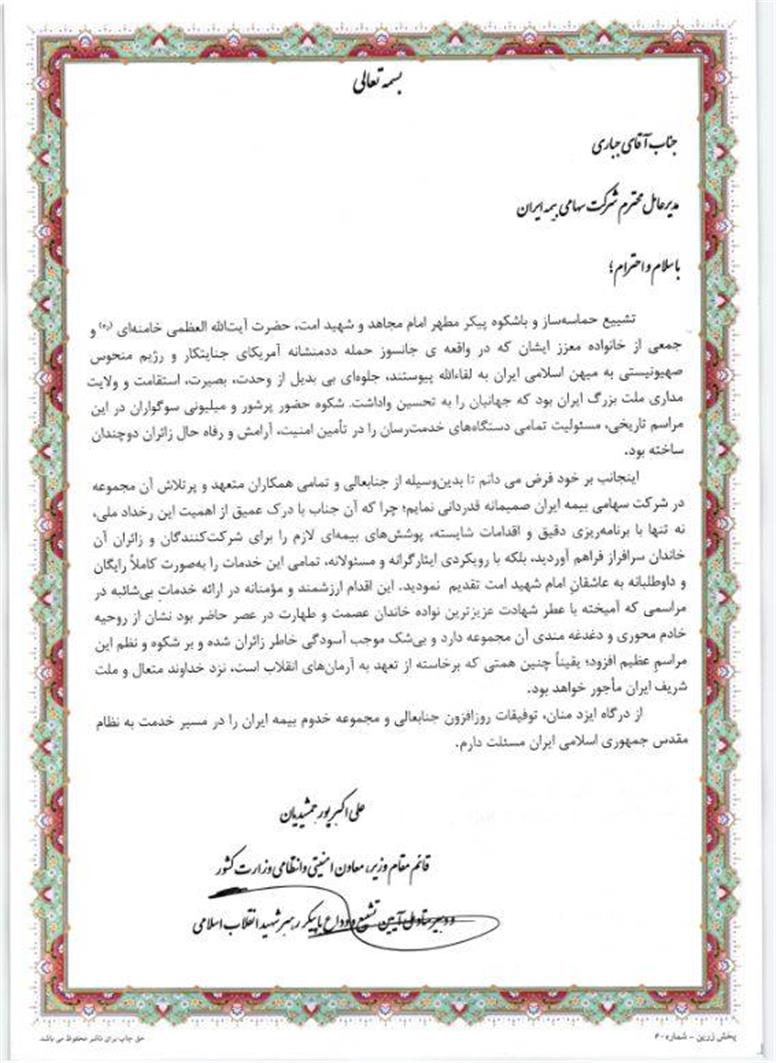 بسمه تعالی
جناب آقای جباری
مدیرعامل محترم شرکت سهامی بیمه ایران
با سلام و احترام؛
تشییع حماسه‌ساز و باشکوه پیکر مطهر امام مجاهد و شهید امت، حضرت آیت‌الله العظمی خامنه‌ای (ره) و
جمعی از خانواده معزز ایشان که در واقعه ی جانسوز حمله ددمنشانه آمریکای جنایتکار و رژیم منحوس
صهیونیستی به میهن اسلامی ایران به لقاءالله پیوستند، جلوه‌ای بی بدیل از وحدت، بصیرت، استقامت و ولایت
مداری ملت بزرگ ایران بود که جهانیان را به تحسین واداشت. شکوه حضور پرشور و میلیونی سوگواران در این
مراسم تاریخی، مسئولیت تمامی دستگاه‌های خدمت‌رسان را در تأمین امنیت، آرامش و رفاه حال زائران دوچندان
ساخته بود.
اینجانب بر خود فرض می دانم تا بدین‌وسیله از جنابعالی و تمامی همکاران متعهد و پرتلاش آن مجموعه
در شرکت سهامی بیمه ایران صمیمانه قدردانی نمایم؛ چرا که آن جناب با درک عمیق از اهمیت این رخداد ملی،
نه تنها با برنامه‌ریزی دقیق و اقدامات شایسته، پوشش‌های بیمه‌ای لازم را برای شرکت‌کنندگان و زائران آن
خاندان سرافراز فراهم آوردید، بلکه با رویکردی ایثارگرانه و مسئولانه، تمامی این خدمات را به‌صورت کاملاً رایگان
و داوطلبانه به عاشقان امام شهید امت تقدیم نمودید. این اقدام ارزشمند و مؤمنانه در ارائه خدماتِ بی‌شائبه در
مراسمی که آمیخته با عطر شهادت عزیزترین نواده خاندان عصمت و طهارت در عصر حاضر بود نشان از روحیه
خادم محوری و دغدغه مندی آن مجموعه دارد و بی‌شک موجب آسودگی خاطر زائران شده و بر شکوه و نظم این
مراسم عظیم افزود؛ یقیناً چنین همتی که برخاسته از تعهد به آرمان‌های انقلاب است، نزد خداوند متعال و ملت
شریف ایران مأجور خواهد بود.
از درگاه ایزد منان، توفیقات روزافزون جنابعالی و مجموعه خدوم بیمه ایران را در مسیر خدمت به نظام
مقدس جمهوری اسلامی ایران مسئلت دارم.
علی اکبر پورجمشیدیان
قائم مقام وزیر، معاون امنیتی و انتظامی وزارت کشور
و دبیر ستاد ملی آیین تشییع و وداع با پیکر رهبر شهید انقلاب اسلامی
پخش زرین - شماره ۶۰
حق چاپ برای ناشر محفوظ می باشد.